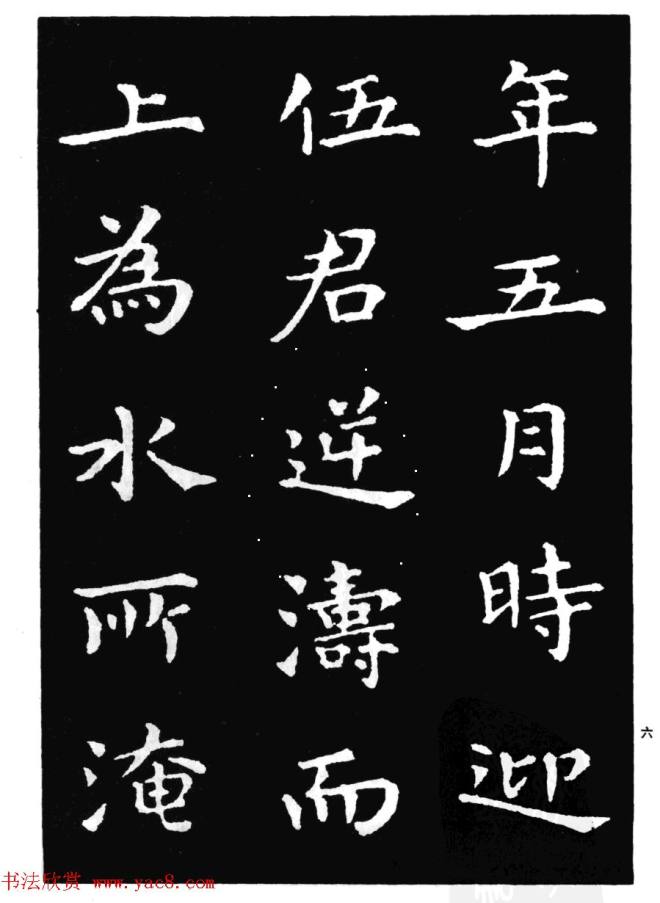 年五月時迎
伍君逆濤而
上為水所淹
六
书法欣赏 www.yac8.com